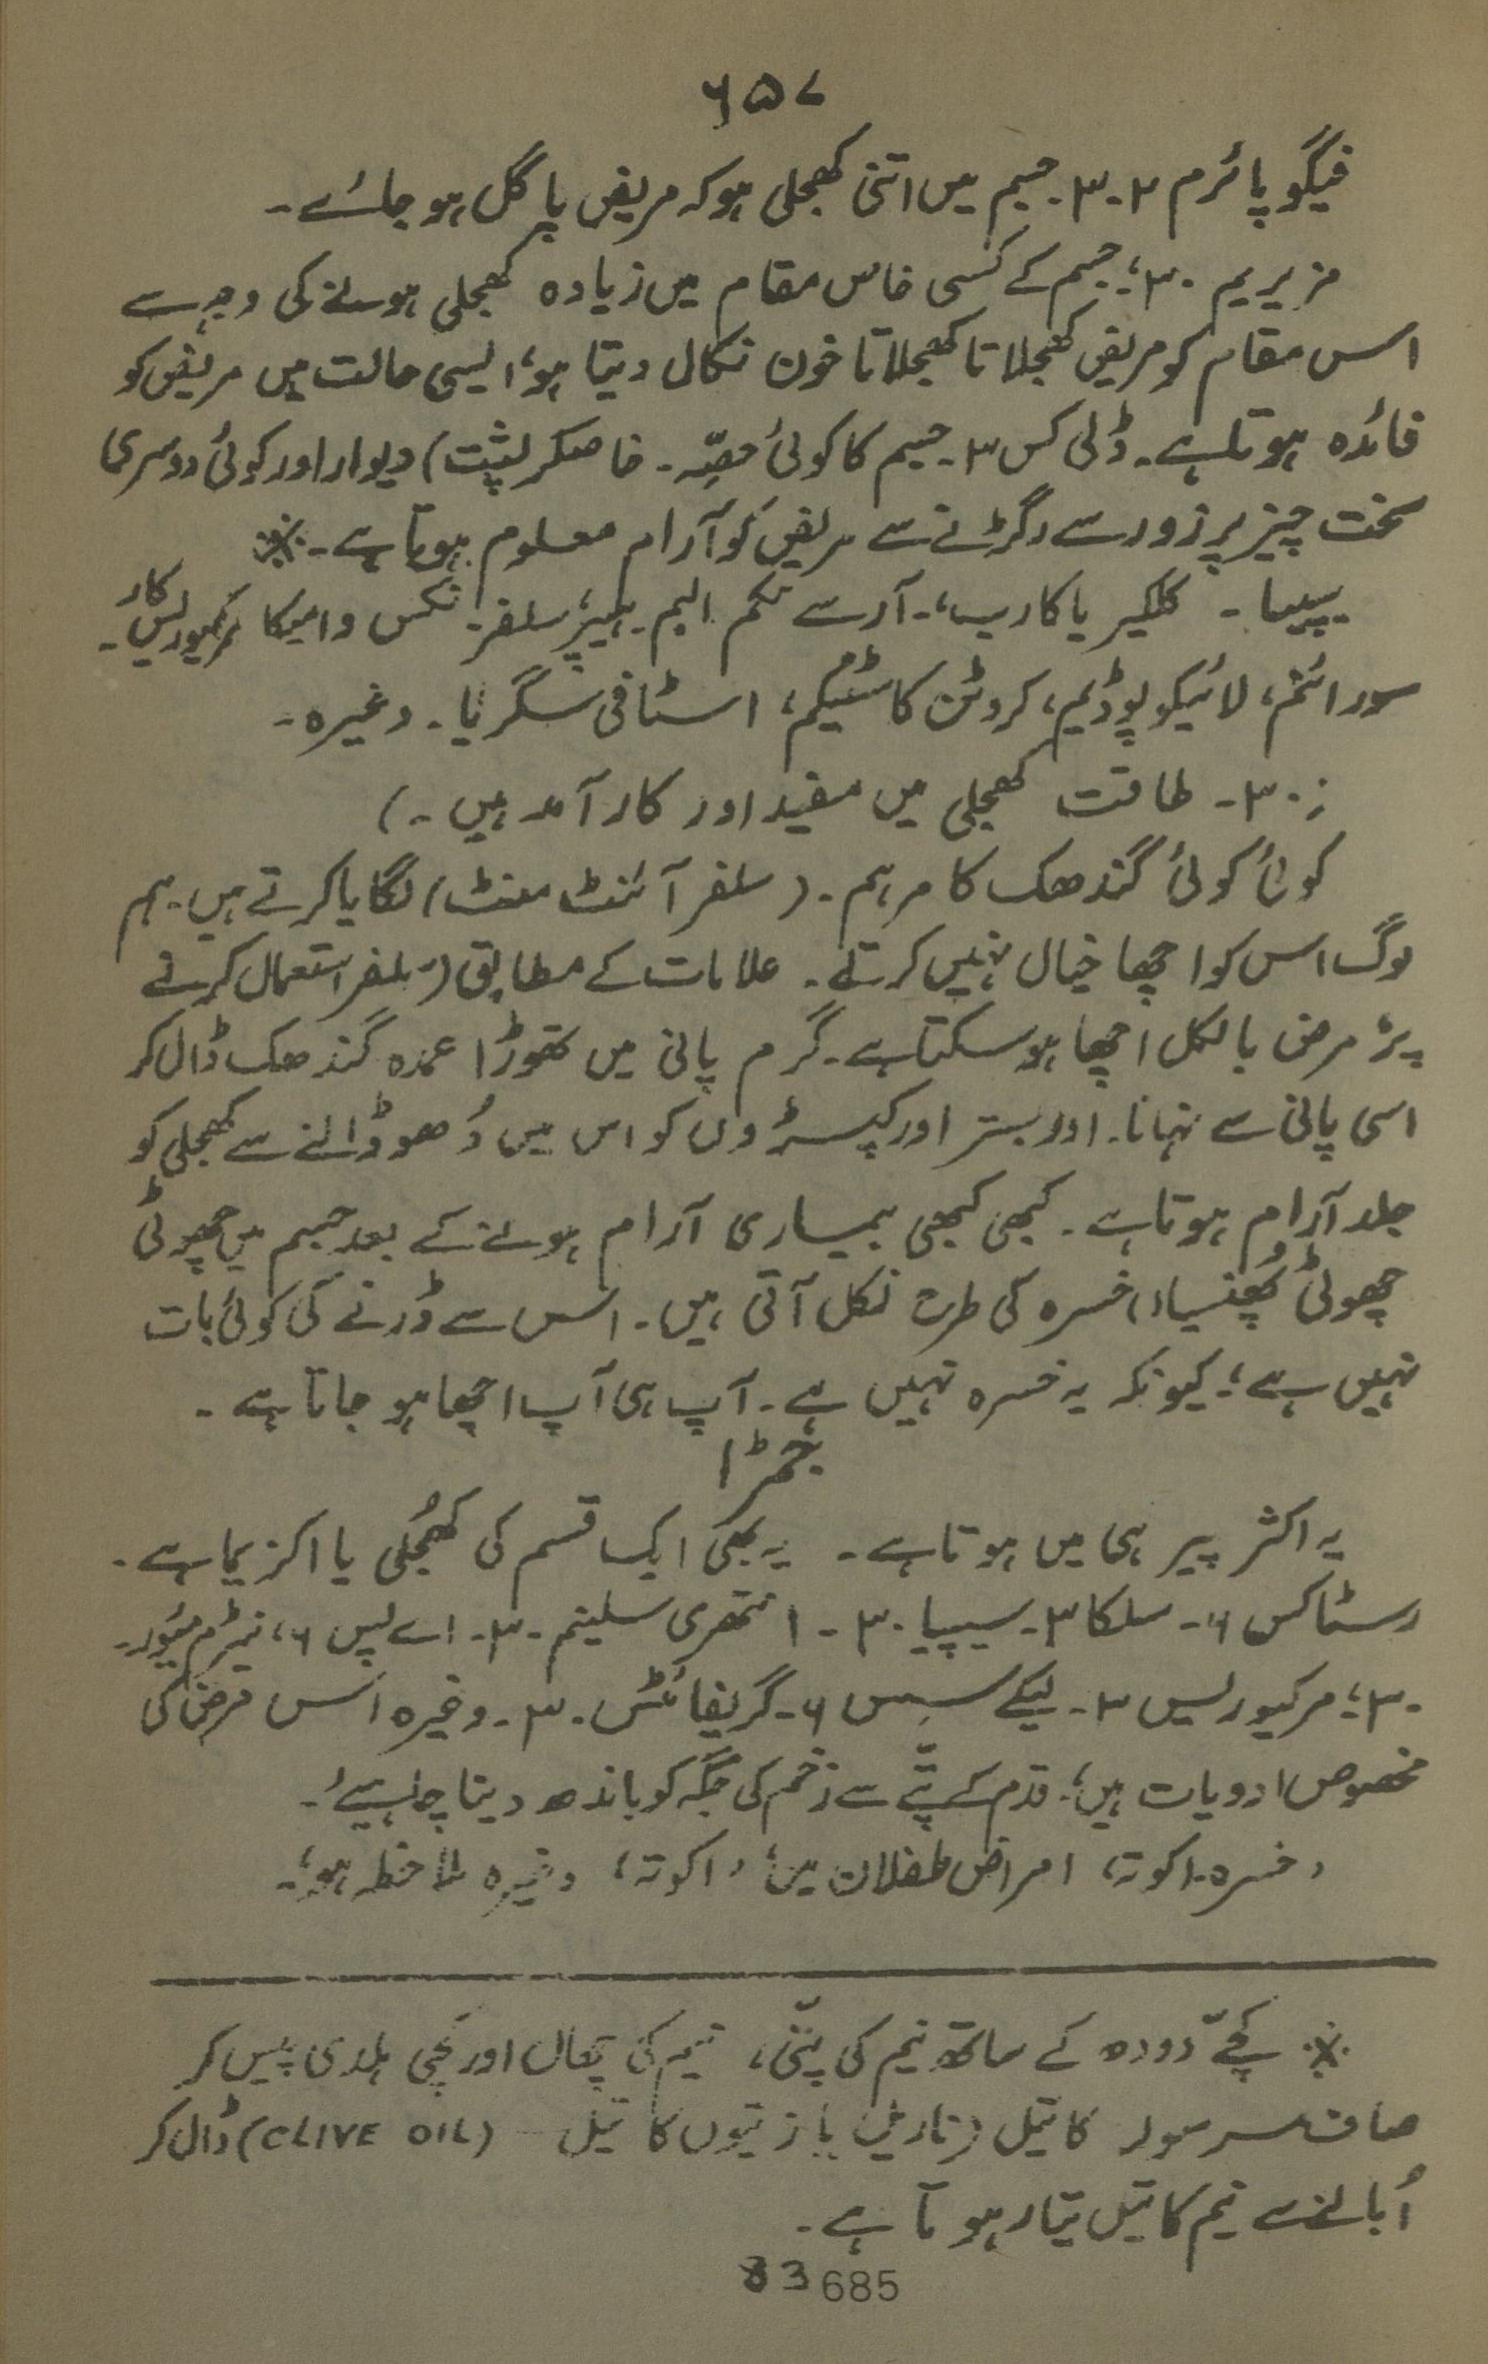 ۶۵۷
فیگو پائرم ۲۔۳۔ جسم میں اتنی کھجلی ہو کہ مریض پاگل ہو جائے۔
مزیریم ۳۰؛ جسم کے کسی خاص مقام میں زیادہ کھجلی ہونے کی وجہ سے
اس مقام کو مریض کھجلاتا کھجلاتا خون نکال دیتا ہو؛ ایسی حالت میں مریض کو
فائدہ ہوتا ہے۔ ڈلی کس ۳۔ جسم کا کوئی حصّہ۔ خاصکر پشت) دیوار اور کوئی دوسری
سخت چیز پر زور سے رگڑنے سے مریض کو آرام معلوم ہوتا ہے۔ ※
سیپیا۔ کلکیریا کارب،۔ آرسے نکم البم۔ ہیپر سلفر۔ نکس وامیکا مرکیوریس کار۔
سورائنم، لائیکو پوڈیم، کروٹن کاسٹیکم، اسٹافی سگریا۔ وغیرہ۔
: ۳۰۔ طاقت کھجلی میں مفید اور کار آمد ہیں۔)
کوئی کوئی گندھک کا مرہم۔ (سلفر آئنٹ منٹ) لگایا کرتے ہیں۔ ہم
لوگ اس کو اچھا خیال نہیں کرتے۔ علامات کے مطابق (سلفر استعمال کرنے
پر مرض بالکل اچھا ہو سکتا ہے۔ گرم پانی میں تھوڑا عمدہ گندھک ڈال کر
اسی پانی سے نہانا۔ اور بستر اور کپڑوں کو اس میں دُھو ڈالنے سے کھجلی کو
جلد آرام ہوتا ہے۔ کبھی کبھی بیماری آرام ہونے کے بعد جسم میں چھوٹی
چھوٹی پُھنسیاں خسرہ کی طرح نکل آتی ہیں۔ اس سے ڈرنے کی کوئی بات
نہیں ہے؛ کیونکہ یہ خسرہ نہیں ہے۔ آپ ہی آپ اچھا ہو جاتا ہے۔
جمڑا
یہ اکثر پیر ہی میں ہوتا ہے۔ یہ بھی ایک قسم کی کھُجلی یا اکزیما ہے۔
رسٹاکس ۶۔ سلکا ۳۔ سیپیا ۳۰۔ انتھری سلینم ۳۰۔ اے پس ۶، نیٹرم میُور۔
۳۰؛ مرکیوریس ۳۔ لیکے سِس ۶۔ گریفائٹس ۳۰۔ وغیرہ اس مرض کی
مخصوص ادویات ہیں؛۔ قدم کے پتّے سے زخم کی جگہ کو باندھ دینا چاہیئے۔
، خسرہ۔ اکوتہ، امراض طفلان میں؛ ، اکوتہ، وغیرہ ملاحظہ ہو؛۔
※ کچّے دودھ کے ساتھ نیم کی پتّی، نیم کی چھال اور کچی ہلدی پیس کر
صاف سرسوں کا تیل (ناریل یا زیتوں کا تیل (CLIVE OIL) ڈال کر
اُبالنے سے نیم کا تیل تیار ہوتا ہے۔
83 685